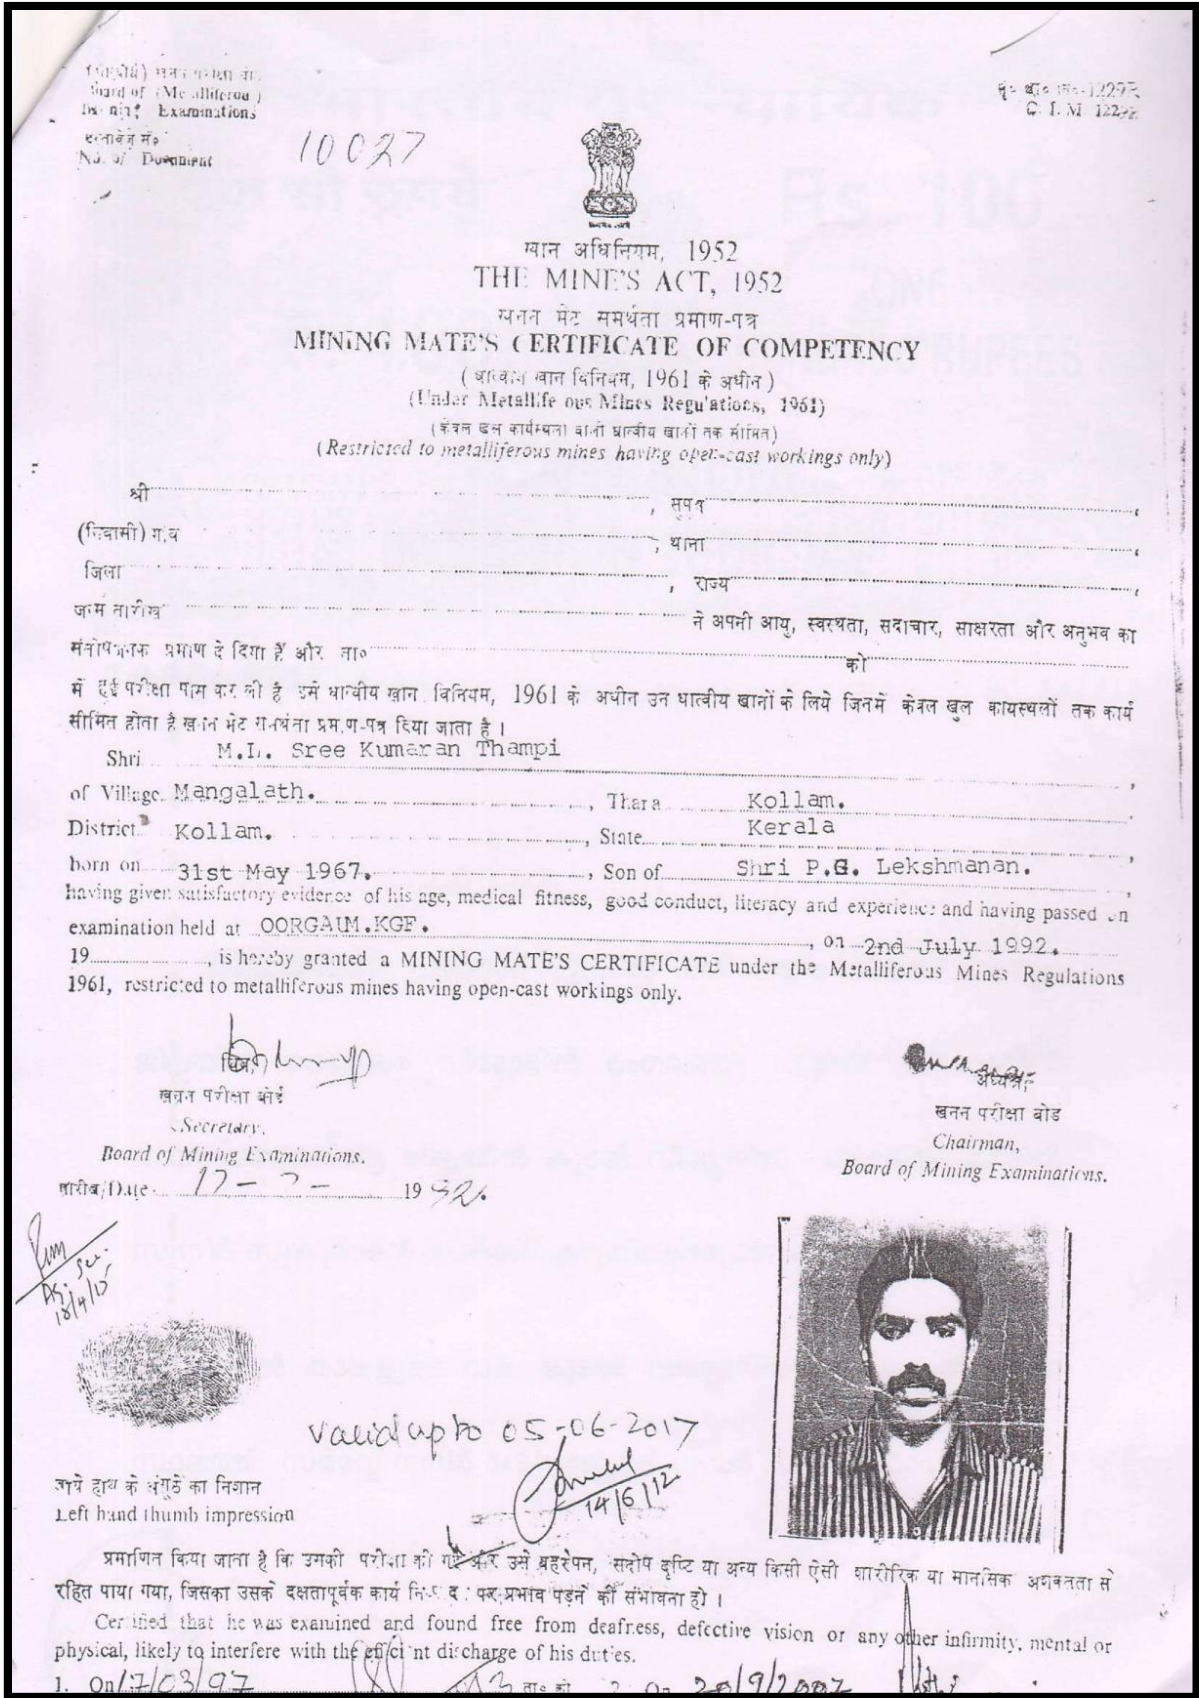 (धात्वीय) खनन परीक्षा बो
Board of (Metalliferou )
Mining Examinations
दस्तावेज सं०
No. of Document 10027
मु० था० नि०-1229R
C. I. M 1229R
खान अधिनियम, 1952
THE MINE'S ACT, 1952
खनन मेट समर्थता प्रमाण-पत्र
MINING MATE'S CERTIFICATE OF COMPETENCY
(धात्वीय खान विनियम, 1961 के अधीन)
(Under Metallife ous Mines Regulations, 1961)
(केवल खुल कार्यस्थलों वाली धात्वीय खानों तक सीमित)
(Restricted to metalliferous mines having open-cast workings only)
श्री , सुपुत्र ,
(निवासी) गांव , थाना ,
जिला , राज्य ,
जन्म तारीख ने अपनी आयु, स्वस्थता, सदाचार, साक्षरता और अनुभव का
संतोषजनक प्रमाण दे दिया हैं और ता० को
में हुई परीक्षा पास कर ली है इसे धात्वीय खान विनियम, 1961 के अधीन उन धात्वीय खानों के लिये जिनमें केवल खुल कार्यस्थलों तक कार्य
सीमित होता है खनन मेट प्रमाण-पत्र दिया जाता है ।
Shri M.L. Sree Kumaran Thampi ,
of Village Mangalath. , Thara Kollam.
District Kollam. , State Kerala ,
born on 31st May 1967. , Son of Shri P.G. Lekshmanan. ,
having given satisfactory evidence of his age, medical fitness, good conduct, literacy and experience and having passed an
examination held at OORGAUM.KGF. , on 2nd July 1992.
19 , is hereby granted a MINING MATE'S CERTIFICATE under the Metalliferous Mines Regulations
1961, restricted to metalliferous mines having open-cast workings only.
खनन परीक्षा बोर्ड
Secretary,
Board of Mining Examinations.
अध्यक्ष,
खनन परीक्षा बोर्ड
Chairman,
Board of Mining Examinations.
तारीख/Date 17-7- 1992.
18/4/15
valid upto 05-06-2017
14/6/12
बायें हाथ के अंगूठे का निशान
Left hand thumb impression
प्रमाणित किया जाता है कि उसकी परीक्षा की गई और उसे बहरेपन, सदोष दृष्टि या अन्य किसी ऐसी शारीरिक या मानसिक अशक्तता से
रहित पाया गया, जिसका उसके दक्षतापूर्वक कार्य पर प्रभाव पड़ने की संभावना हो ।
Certified that he was examined and found free from deafness, defective vision or any other infirmity, mental or
physical, likely to interfere with the efficient discharge of his duties.
1. On 17/03/97 ता० को 2. On 20/9/2007